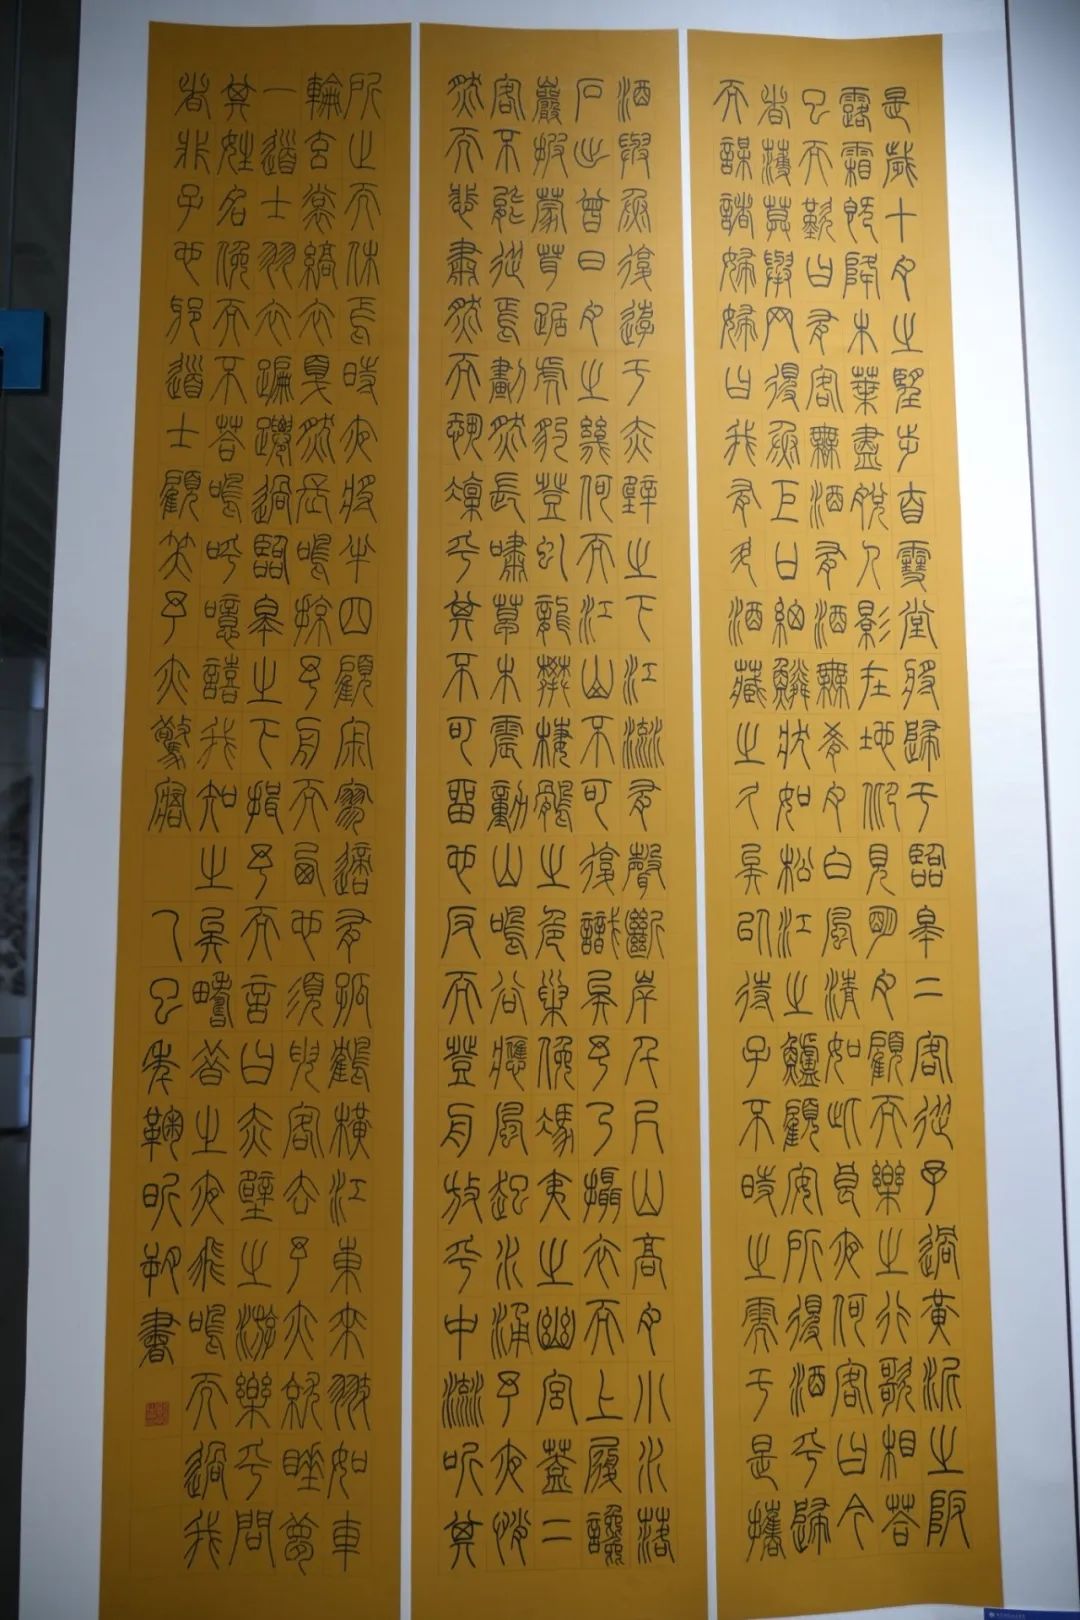 是歲十月之望步自雪堂將歸于臨皋二客從予過黃泥之阪
露霜既降木葉盡脫人影在地仰見明月顧而樂之行歌相答
已而歎曰有客無酒有酒無肴月白風清如此良夜何客曰今
者薄莫舉网得魚巨口細鱗狀如松江之鱸顧安所得酒乎歸
而謀諸婦婦曰我有斗酒藏之久矣以待子不時之需于是攜
酒與魚復遊于赤壁之下江流有聲斷岸千尺山高月小水落
石出曾日月之幾何而江山不可復識矣予乃攝衣而上履巉
巖披蒙茸踞虎豹登虯龍攀棲鶻之危巢俯馮夷之幽宮蓋二
客不能從焉劃然長嘯草木震動山鳴谷應風起水涌予亦悄
然而悲肅然而恐凜乎其不可留也反而登舟放乎中流聽其
所止而休焉時夜將半四顧寂寥適有孤鶴橫江東來翅如車
輪玄裳縞衣戛然長鳴掠予舟而西也須臾客去予亦就睡夢
一道士羽衣蹁躚過臨皋之下揖予而言曰赤壁之游樂乎問
其姓名俯而不答嗚呼噫嘻我知之矣疇昔之夜飛鳴而過我
者非子也邪道士顧笑予亦驚寤 乙巳年鞠昕書